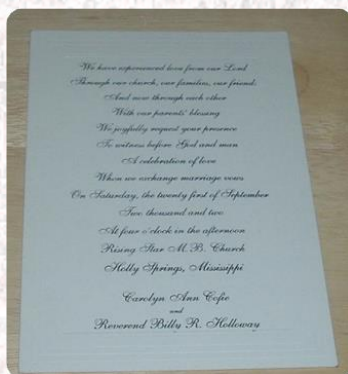 We have experienced love from our Lord
Through our church, our families, our friends
And now through each other
With our parents' blessing
We joyfully request your presence
To witness before God and man
A celebration of love
When we exchange marriage vows
On Saturday, the twenty first of September
Two thousand and two
At four o'clock in the afternoon
Rising Star M.B. Church
Holly Springs, Mississippi
Carolyn Ann Cofie
and
Reverend Billy R. Holloway